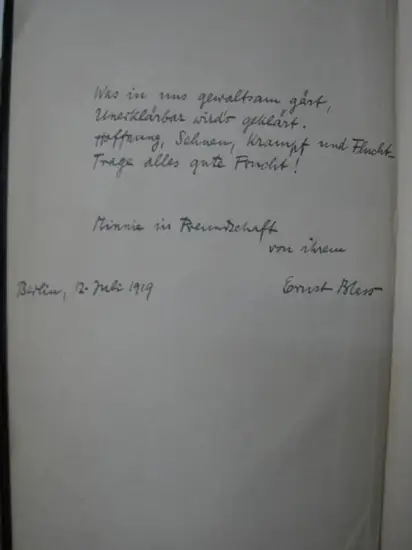 Was in uns gewaltsam gärt,
Unerklärbar wird's geklärt.
Hoffnung, Sehnen, Krampf und Flucht -
Trage alles gute Frucht!
Minnie in Freundschaft
von ihrem
Ernst Bless
Berlin, 12. Juli 1919